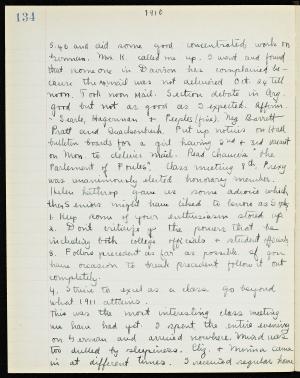 134
1910
5:40 and did some good concentrated work on
German. Mrs. K. called me up. I went and found
that someone in Davison has complained be-
cause the mail was not delivered Oct. 24 till
noon. Took noon mail. Section debate in Arg.
good but not as good as I expected. Affirm.
Searle, Hagerman & Peeples (fire). Neg. Barrett
Pratt and Quackenbush. Put up notices on Hall
bulletin boards for a girl having 2nd & 3rd vacant
on Mon. to deliver mail. Read Chaucer's "the
Parlement of Foules". Class meeting 4th. Prexy
was unanimously elected honorary member.
Helen Lathrop gave us some advice which
they Seniors might have liked to know as Sophs.
1. Keep some of your enthusiasm stored up
2. Don't criticize the powers that be
including both college officials & student officials
3. Follow precedent as far as possible. If you
have occasion to break precedent follow it out
completely.
4. Strive to excel as a class go beyond
what 1911 attains.
This was the most interesting class meeting
we have had yet. I spent the entire evening
on German and arrived nowhere. Mind was
too dulled by sleepiness. Eliz. & Minina came
in at different times. I received regular home